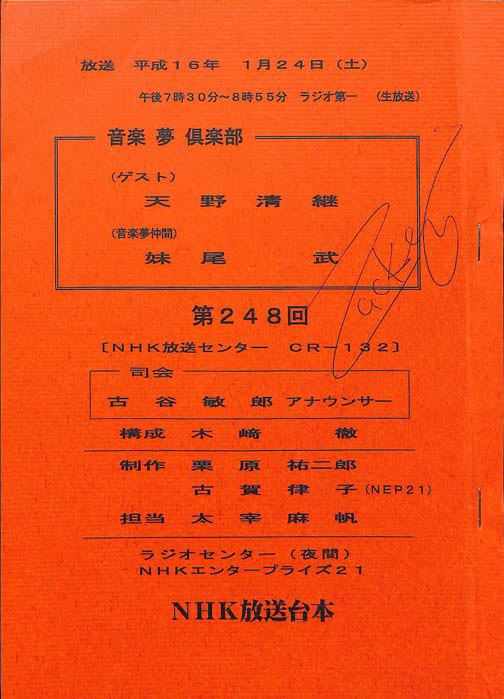 放送 平成16年 1月24日(土)
午後7時30分～8時55分 ラジオ第一 (生放送)
音楽 夢 倶楽部
(ゲスト)
天野清継
(音楽夢仲間)
妹尾 武
第248回
〔NHK放送センター CR-132〕
司会
古谷敏郎 アナウンサー
構成 木﨑 徹
制作 栗原祐二郎
古賀律子(NEP21)
担当 太宰麻帆
ラジオセンター(夜間)
NHKエンタープライズ21
NHK放送台本